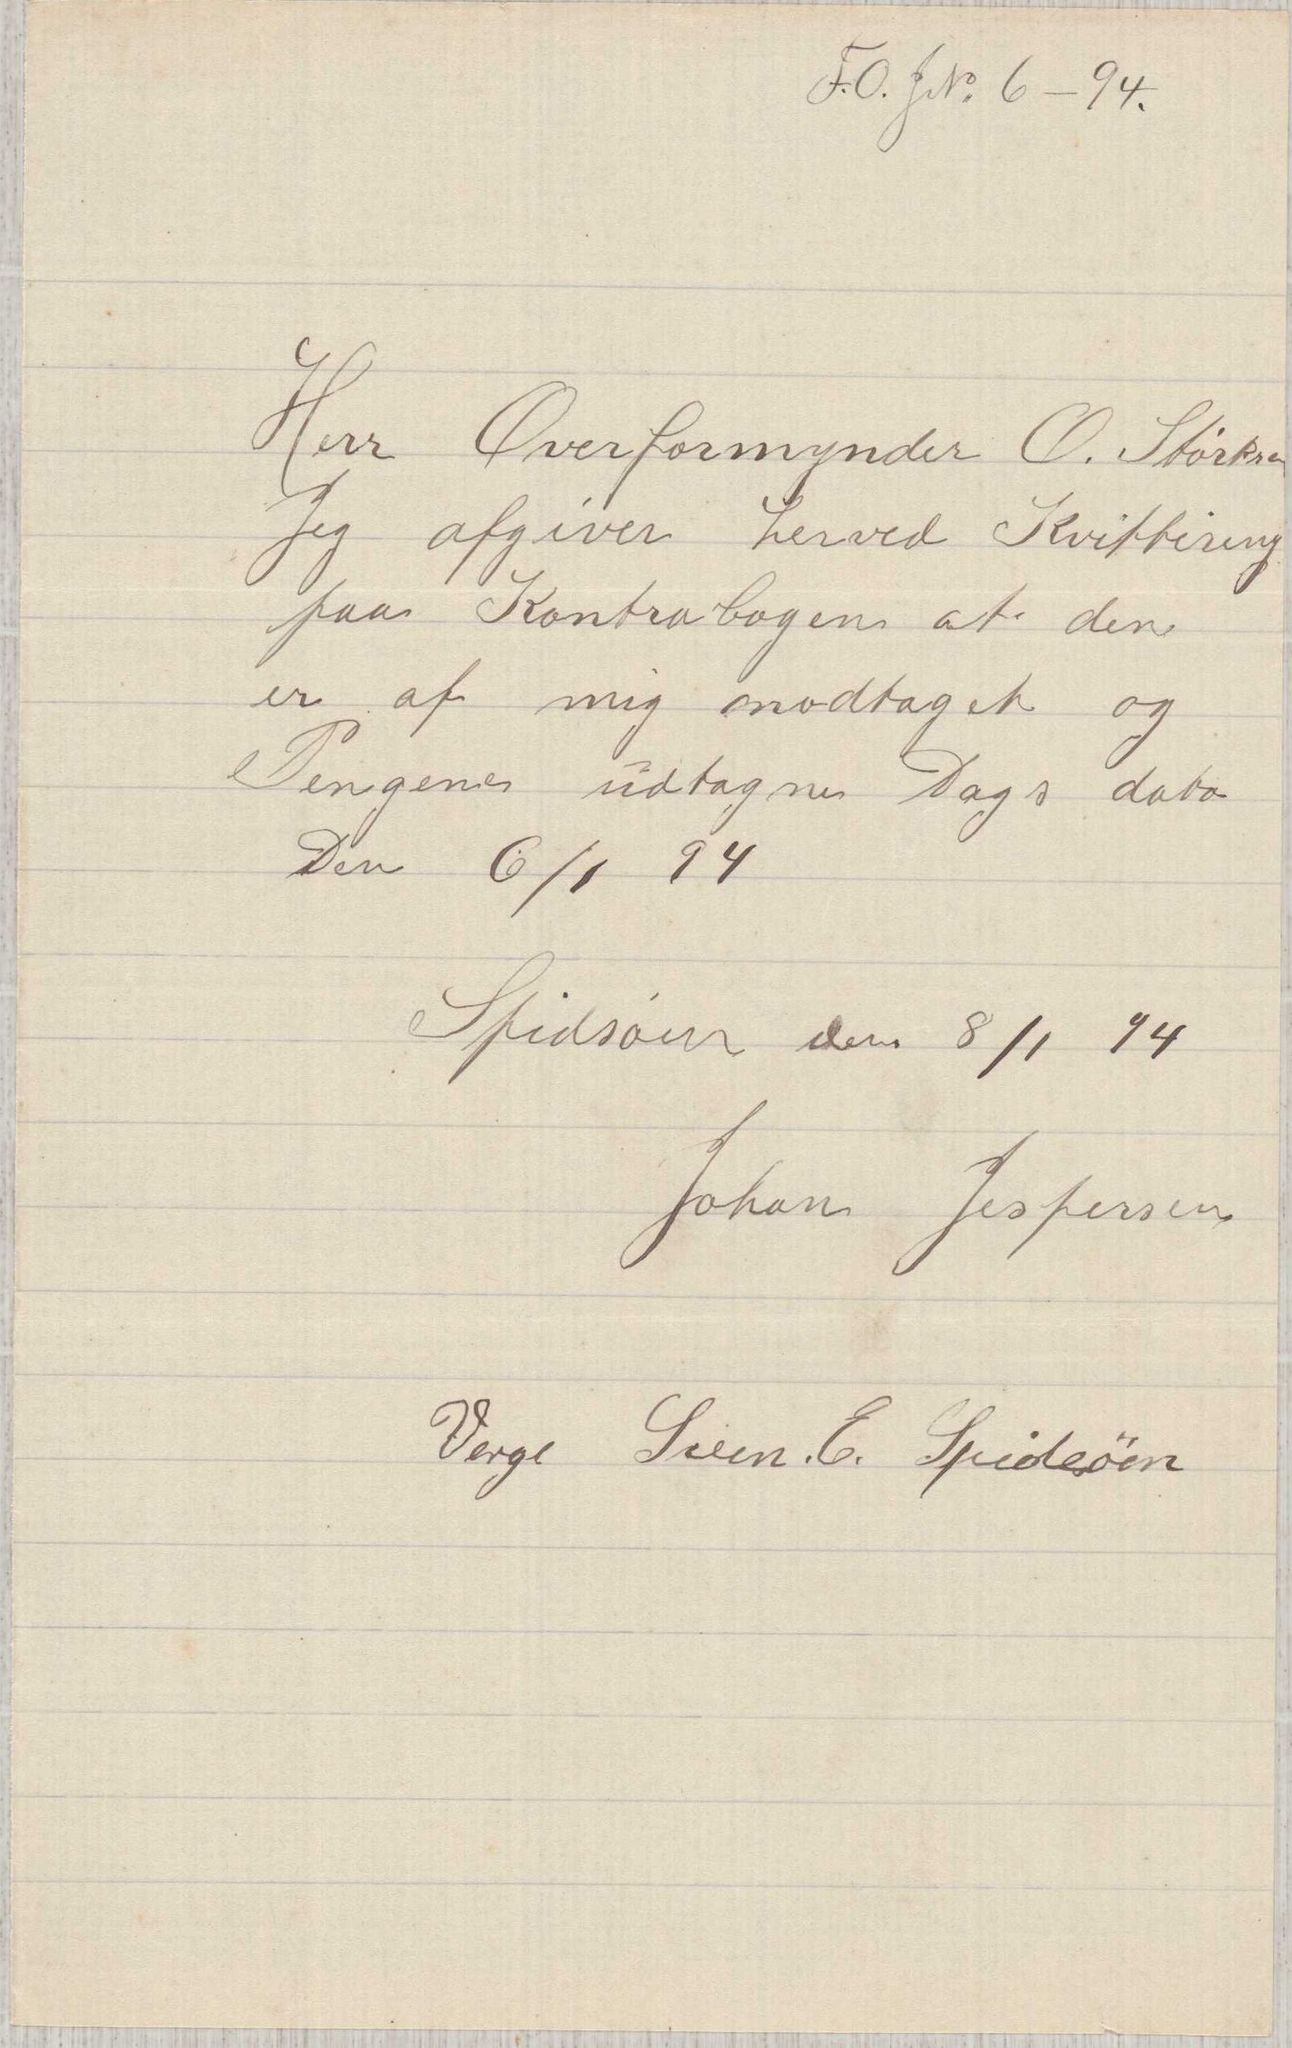 F.O. J.No. 6 – 94.
Herr Overformynder O. Störksen
Jeg afgiver herved Kvittering
paa Kontrabogen at den
er af mig modtaget og
Pengene udtagne Dags dato
Den 6/1 94
Spidsöen den 8/1 94
Johan Jespersen
Verge Sven. E. Spidsöen